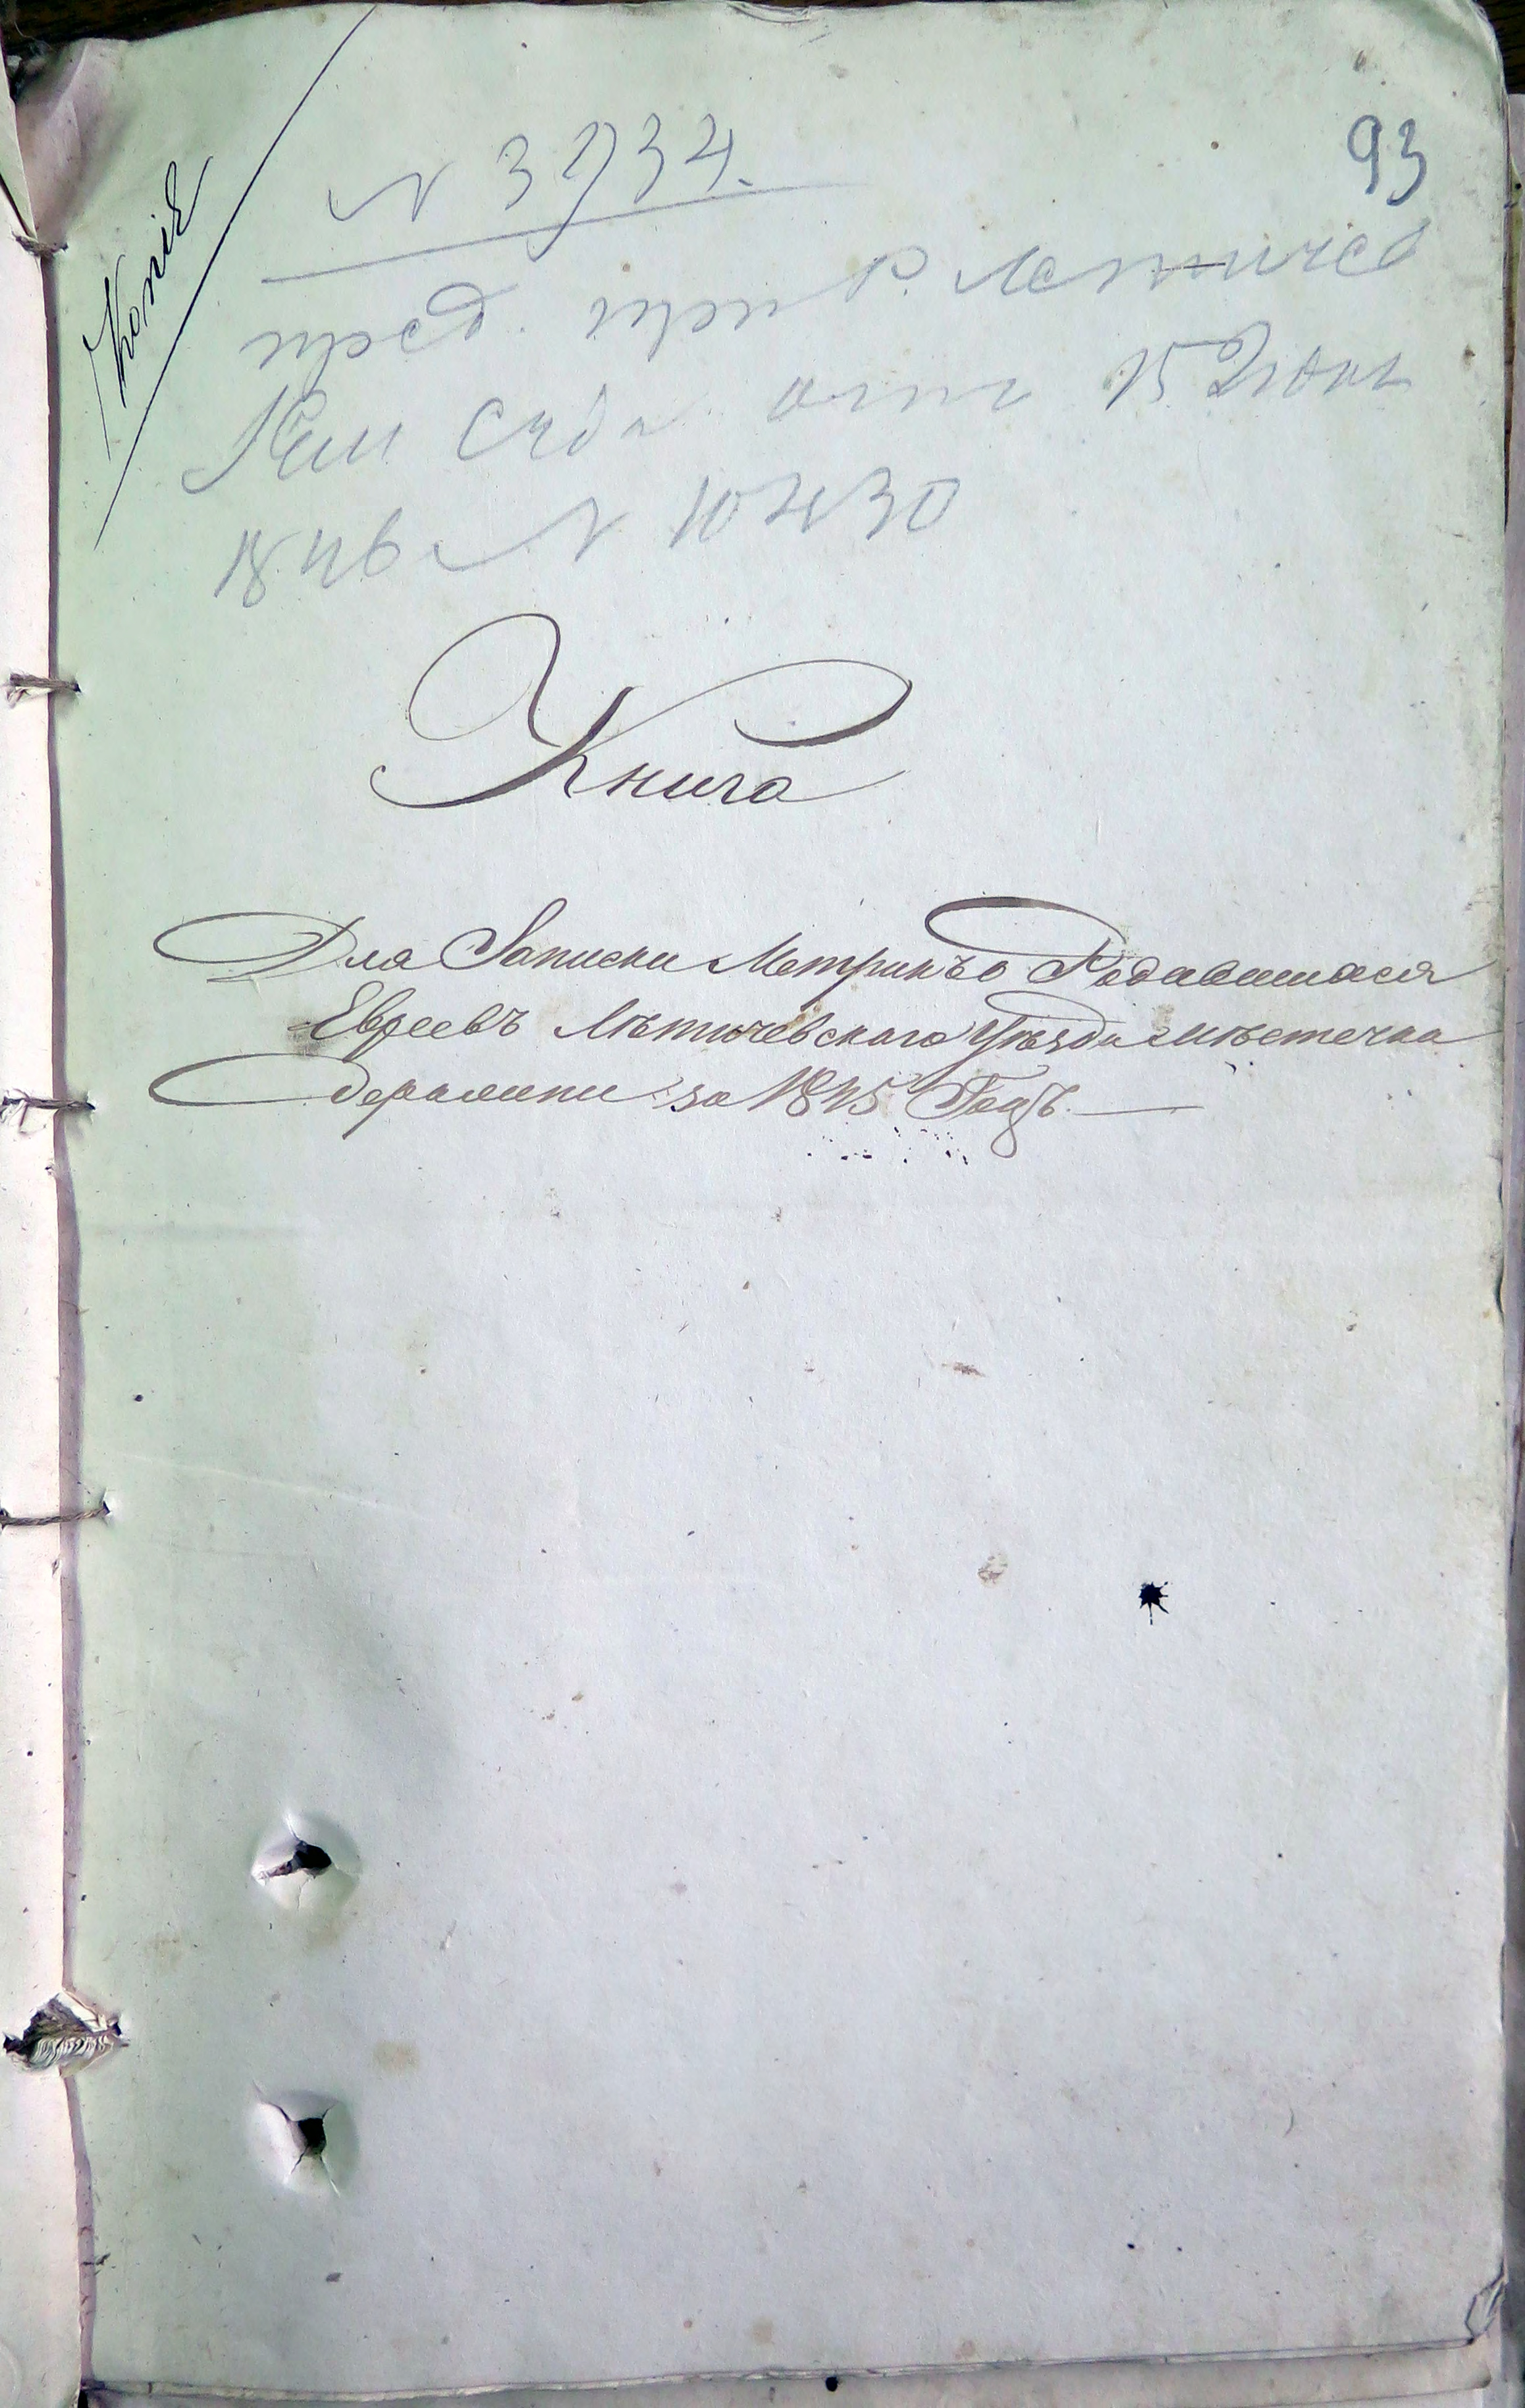 93
Копія
N 3734.
пред. при р. Летичев
Суда отъ 15 Июня
1846 N 10430
Книга
Для Записки Метрикъ о Родавшихся
Евреевъ Лѣтичевского Уѣзда мѣстечка
деражни за 1845 Годъ.